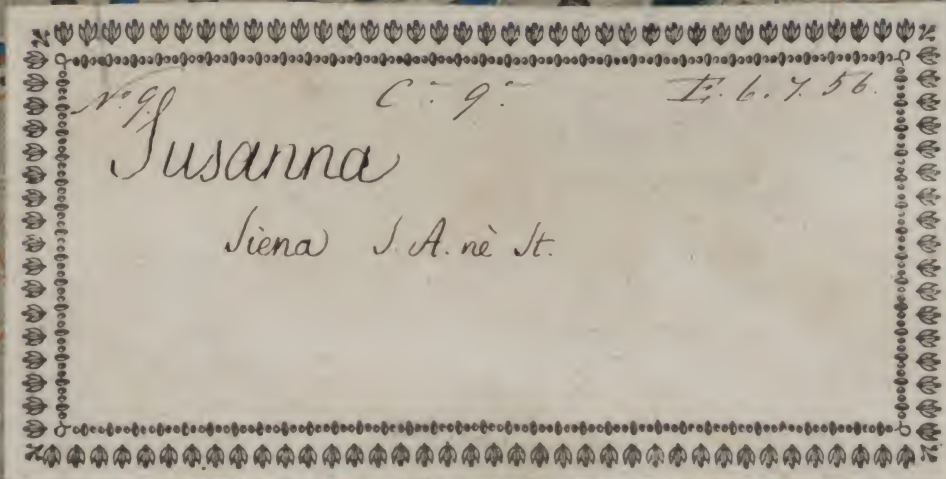 No. 99. C.a 9.a E. 6. 7. 56.
Susanna
Siena S. A. nè St.